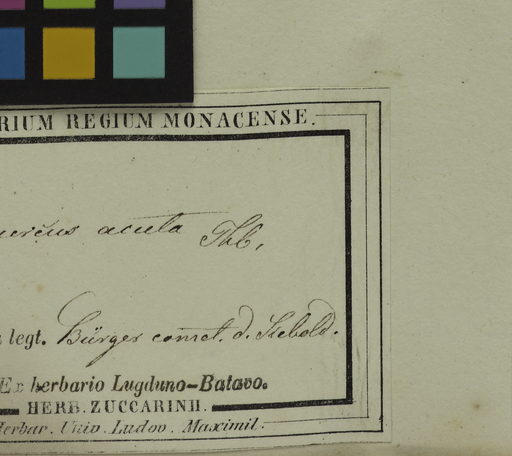 RIUM REGIUM MONACENSE.
uercus acuta Thb,
legt. Bürger comct. d. Siebold.
Ex herbario Lugduno-Batavo.
HERB. ZUCCARINII.
Herbar. Univ. Ludov. Maximil.